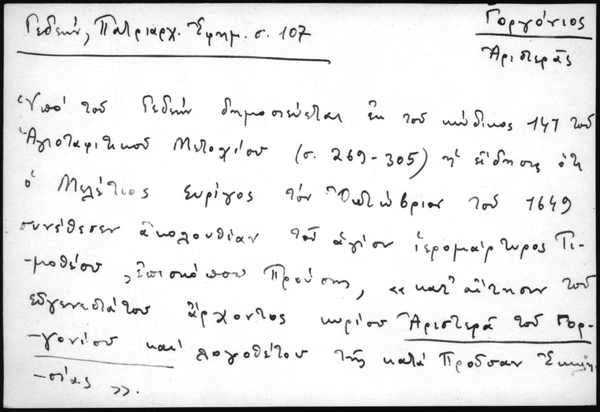 Γεδεών, Πατριαρχ. Ἐφημ. σ. 107
Γοργόνιος
Ἀριστερᾶς
Ὑπό τοῦ Γεδεών δημοσιεύεται ἐκ τοῦ κώδικος 147 τοῦ
Ἁγιοταφιτικοῦ Μετοχίου (σ. 269-305) ἡ εἴδησις ὅτι
ὁ Μελέτιος Συρίγος τόν Ὀκτώβριον τοῦ 1649
συνέθεσεν ἀκολουθίαν τοῦ ἁγίου ἱερομάρτυρος Τι-
-μοθέου, ἐπισκόπου Προύσης, «κατ' αἴτησιν τοῦ
εὐγενεστάτου ἄρχοντος κυρίου Ἀριστερᾶ τοῦ Γορ-
-γονίου καί λογοθέτου τῆς κατά Προῦσαν Ἐκκλη-
-σίας».